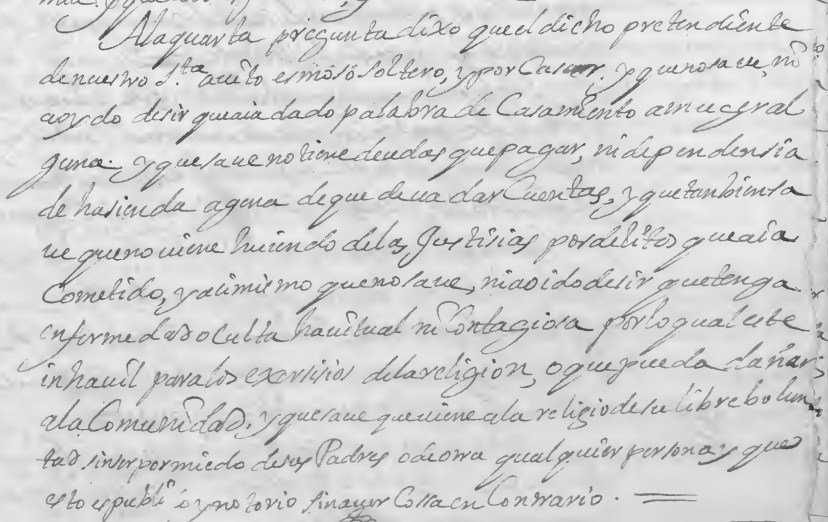 Alaquarta pregunta dixo que el dicho pretendiente
de nuestro S.ta auito es moso soltero, y por Casar. y que no saue, ni
a oydo desir que aia dado palabra de Casamiento a muger al
guna. y que saue no tiene deudas que pagar, ni dependensia
de hasienda agena de que deua dar Cuentas, y que tanbien sa
ue que no uiene huiendo de las Justisias por delitos que aia
Cometido, y acimismo que no saue, ni a oido desir que tenga
enfermedad oculta hauitual ni Contagiosa por lo qual este
inhauil para los exersisios de la religion, o que pueda dañar
a la Comunidad. y que saue que uiene a la religio de su libre bolun
tad sin ser por miedo de sus Padres o de otra qualquier persona y que
esto es publico y notorio sin auer Cossa en Contrario.